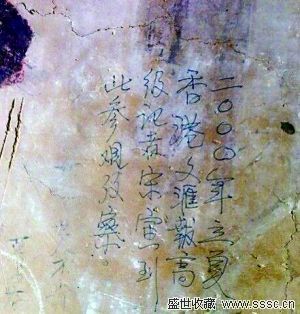 二〇〇四年立夏
香港文匯報高
级记者宋到
此参观考察
盛世收藏 www.sssc.cn